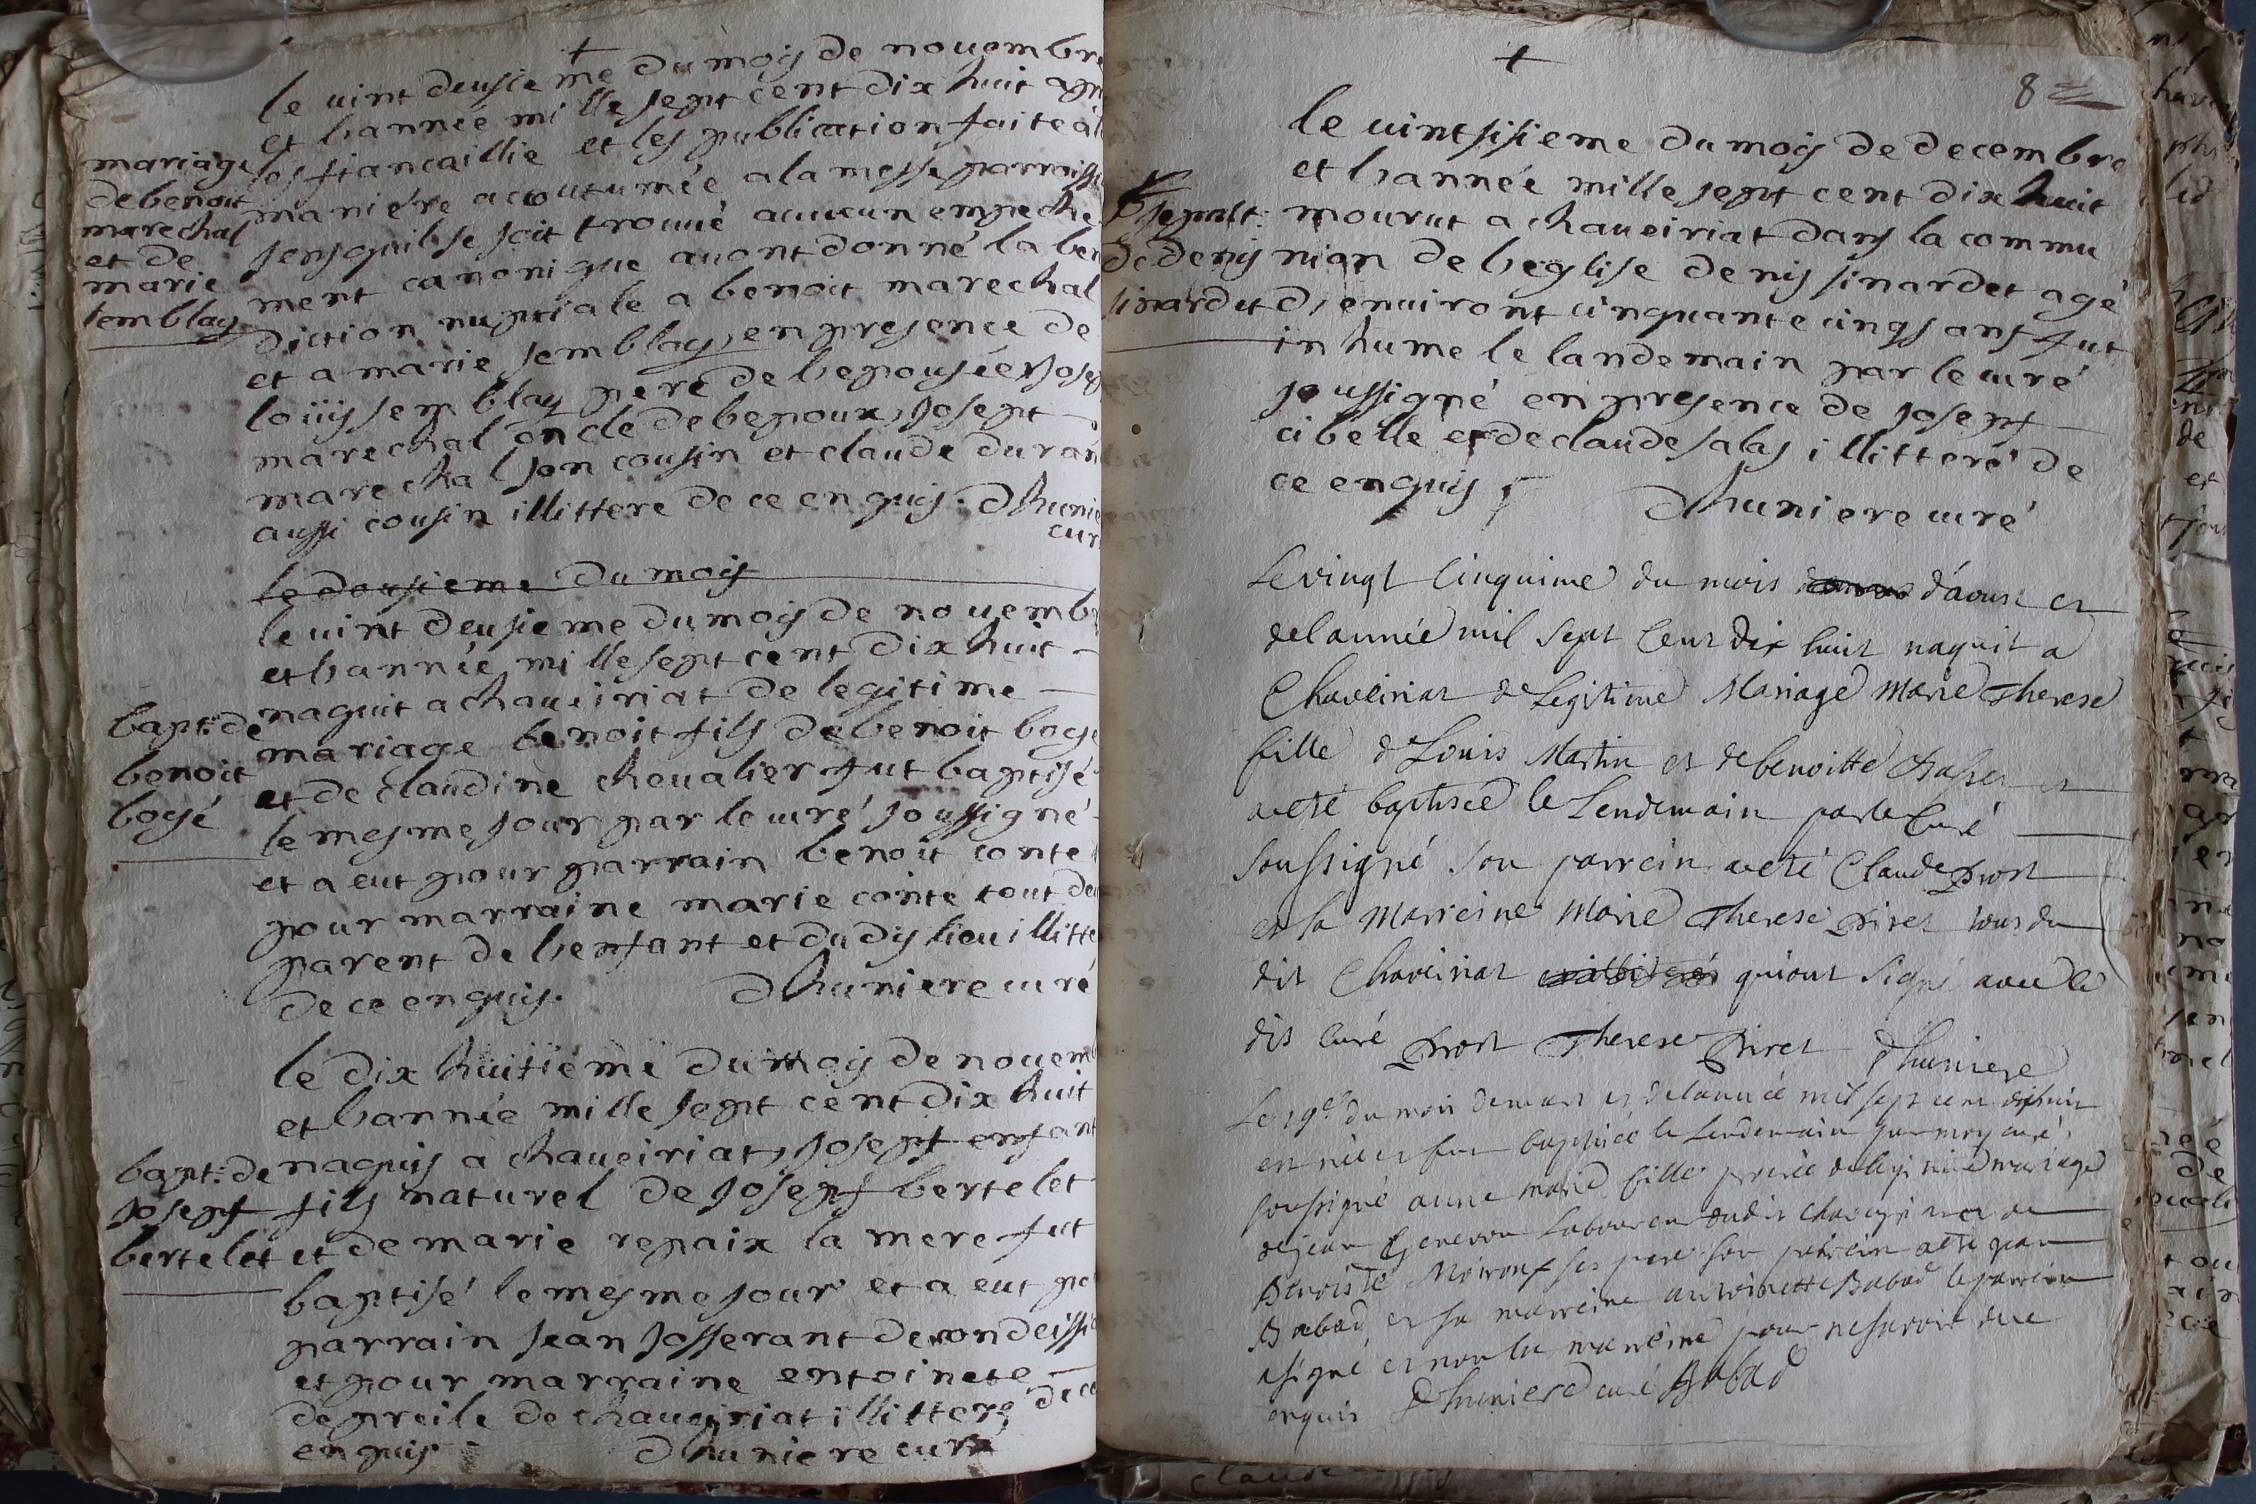 +
le uint deusieme du moys de nouembre
et l'année mille sept cent dix huit
les fiancaillie et les publication faite
maniére acoutumée a la messe parroiss
sens quil se soit trouué aucun empeche
ment canonique auont donné la ben
diction nuptiale a benoit marechal
et a marie semblay, en presence de
loüys semblay pere de l'epousée, Josep
marechal oncle de l'epoux, Josept
marechal son cousin et claude duran
aussi cousin illittere de ce enquis. Dhunie
cur
mariage
de benoit
marechal
et de
marie
semblay
le dousieme du moys
le uint deusieme du moys de nouemb
et l'année mille sept cent dix huit
naquit a chaueiriat de legitime
mariage benoit fils de benoit boyé
et de claudine cheualier fut baptisé
le mesme jour par le curé soussigné
et a eut pour parrain benoit conte
pour marraine marie conte tout de
parent de l'enfant et du dis lieu illitte
de ce enquis. Dhuniere curé
bapt: de
benoit
boyé
le dix huitiéme du moys de nouem
et l'année mille sept cent dix huit
naquis a chaueiriat, Josept enfant
fils naturel de Josept bertelet
et de marie repaix la mere fut
baptisé le mesme jour et a eut po
parrain jean Josserant de condeissi
et pour marraine entoinete
de preile de chaueiriat illitteré de ce
enquis Dhuniere curé
bapt: de
Josept
bertelet
+
8
le uintsisieme du moys de decembre
et l'année mille sept cent dix huit
mourut a chaueiriat dans la commu
nian de l'eglise denis sinardet agé
d'enuiront cinquante cinqs ans fut
inhume le landemain par le curé
soussigné en presence de Josept
cibelle et de claude salas illitteré de
ce enquis Dhuniere curé
sepult:
de denis
sinardet
Le vingt cinquime du mois d'aoust et
de lannée mil sept cent dix huit naquit a
Chaveiriat de Legitime Mariage Marie Therese
fille de Louis Martin et de benoitte et
a eté baptisée le Lendemain par le Curé
soussigné son parrein a eté Claude Prost
et sa Marreine Marie Therese Piret tous du
dit Chaveiriat qui ont signé avec le
dit Curé Prost Therese Piret Dhuniere
Le 19e du mois de mars et de lannée mil sept cent dix huit
est née et fut baptisée le Lendemain par moy curé
soussigné anne marie fille procrée de legitime mariage
de jean Genevon Laboureur dudit et de
Benoiste ses pere son parrein a eté jean
Babad et sa marreine antoinette Babad le parrein
a signé et non la marreine pour ne savoir de ce
enquis Dhuniere curé Babad